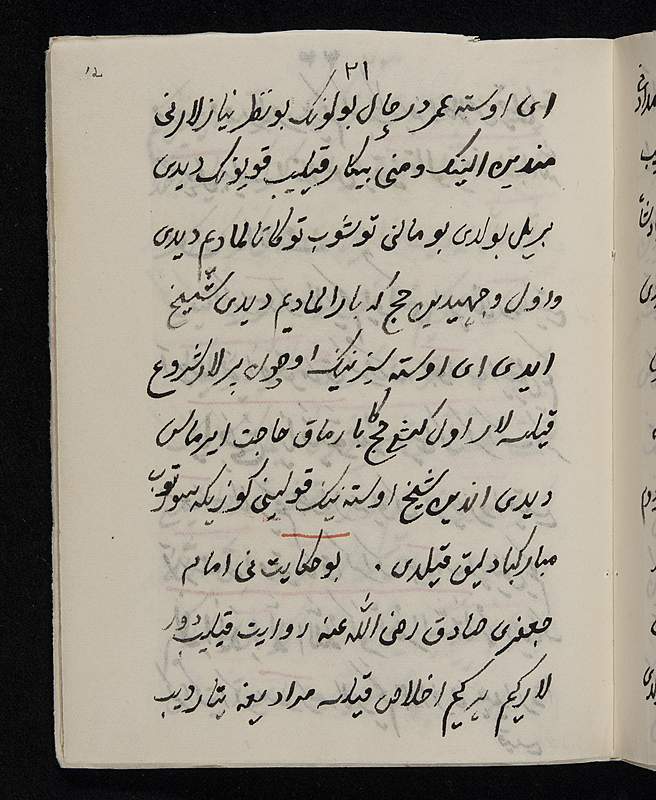 ۲۱
ای اوسته عمر در حال بولونک بو نظر نیازلارنی
مندین الینک و منی بیکار قیلیب قویونک دیدی
بریل بولدی بو مالنی توشوب توکاتالمادیم دیدی
و اول وجهیدین حج که بارالمادیم دیدی شیخ
ایدی ای اوسته سیزنینک اوچون پیرلار شروع
قیلسه لار اول کشی حج کا بارماق حاجت ایرماس
دیدی اندین شیخ اوسته نینک قولینی کوزیکه سورتوب
مبارکباد لیق قیلدی ۰ بو حکایت نی امام
جعفری صادق رضی الله عنه روایت قیلیب دور
لار کیم هر کیم اخلاص قیلسه مرادیغه یتار دیب